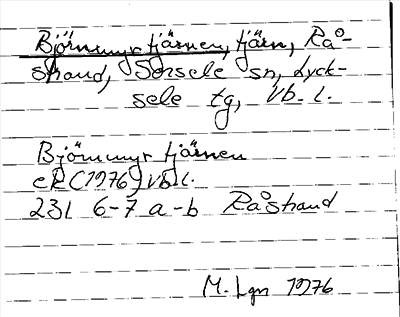 Björnmyrtjärnen, tjärn, Rå-
strand, Sorsele sn, Lyck-
sele tg, Vb. l.
Björnmyrtjärnen
eK (1976) Vb l.
23I 6-7 a-b Råstrand
M. Lgn 1976